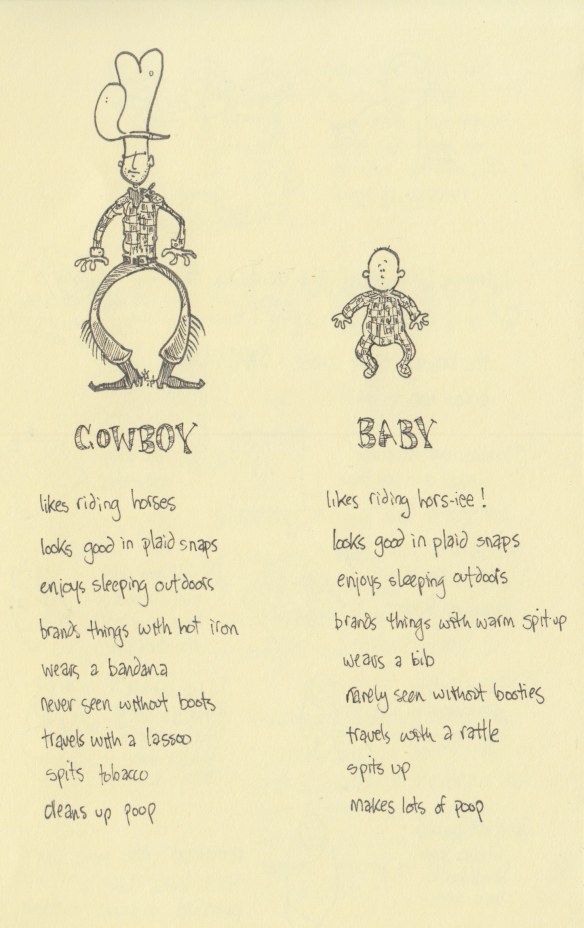 COWBOY
likes riding horses
looks good in plaid snaps
enjoys sleeping outdoors
brands things with hot iron
wears a bandana
never seen without boots
travels with a lassoo
spits tobacco
cleans up poop
BABY
likes riding hors-iee!
looks good in plaid snaps
enjoys sleeping outdoors
brands things with warm spit up
wears a bib
rarely seen without booties
travels with a rattle
spits up
makes lots of poop